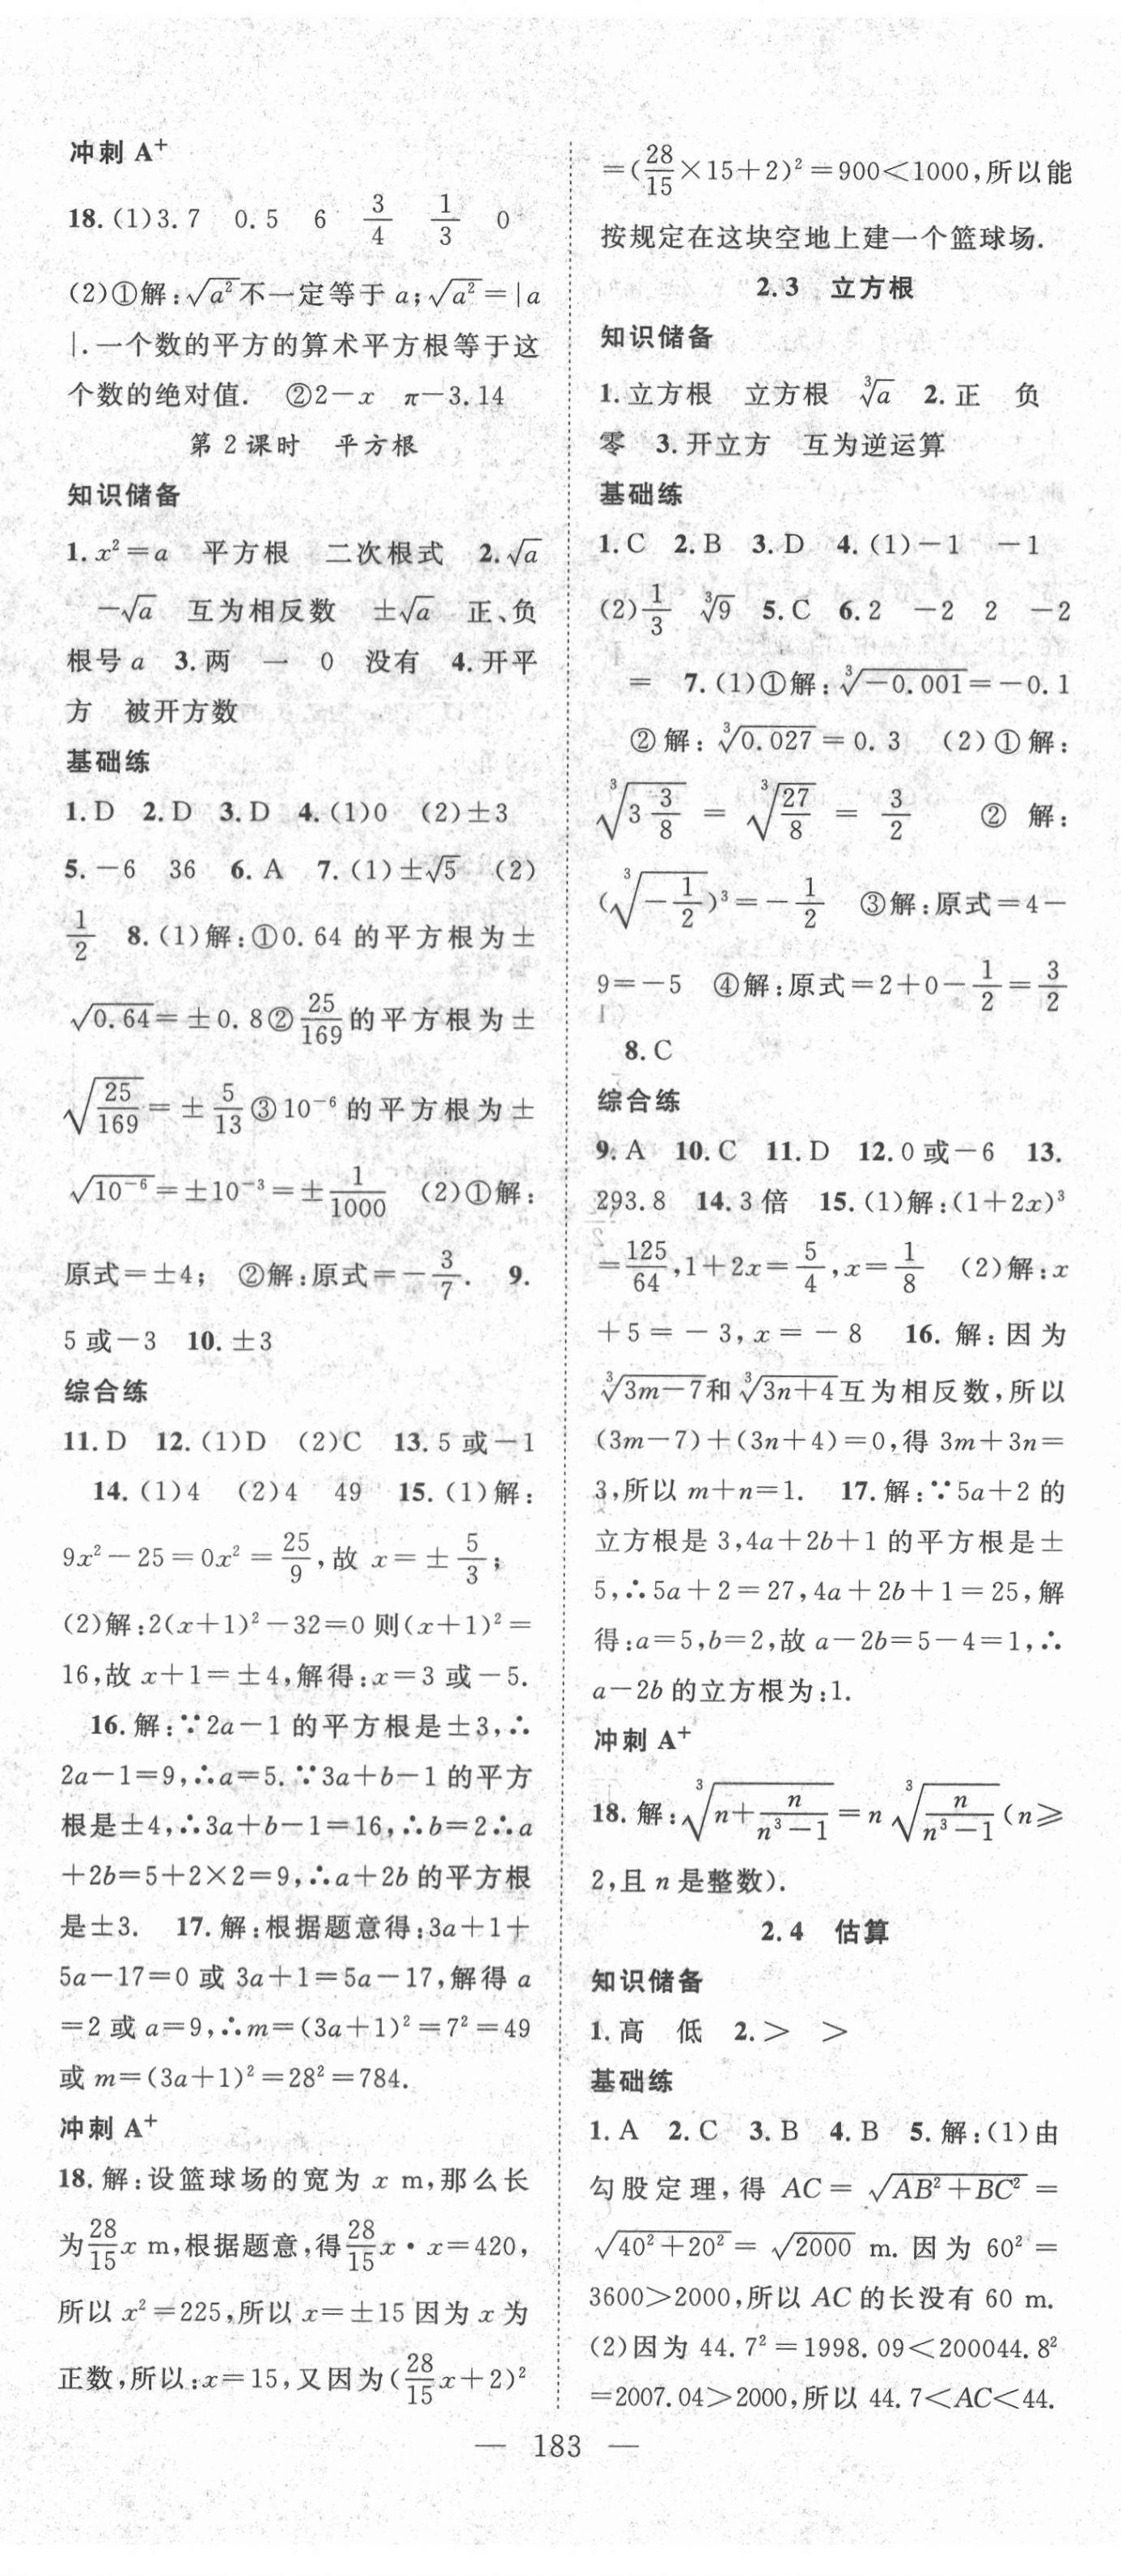 冲刺 A⁺
18.(1)3.7 0.5 6 3/4 1/3 0
(2)①解:√(a²)不一定等于 a;√(a²)=|a
|.一个数的平方的算术平方根等于这
个数的绝对值. ②2-x π-3.14
第 2 课时 平方根
知识储备
1.x²=a 平方根 二次根式 2.√a
-√a 互为相反数 ±√a 正、负
根号 a 3.两 一 0 没有 4.开平
方 被开方数
基础练
1.D 2.D 3.D 4.(1)0 (2)±3
5.-6 36 6.A 7.(1)±√5 (2)
1/2 8.(1)解:①0.64 的平方根为±
√0.64=±0.8②25/169的平方根为±
√(25/169)=±5/13③10⁻⁶的平方根为±
√(10⁻⁶)=±10⁻³=±1/1000 (2)①解:
原式=±4; ②解:原式=-3/7. 9.
5 或-3 10.±3
综合练
11.D 12.(1)D (2)C 13.5 或-1
14.(1)4 (2)4 49 15.(1)解:
9x²-25=0x²=25/9,故 x=±5/3;
(2)解:2(x+1)²-32=0 则(x+1)²=
16,故 x+1=±4,解得:x=3 或-5.
16.解:∵2a-1 的平方根是±3,∴
2a-1=9,∴a=5.∵3a+b-1 的平方
根是±4,∴3a+b-1=16,∴b=2∴a
+2b=5+2×2=9,∴a+2b 的平方根
是±3. 17.解:根据题意得:3a+1+
5a-17=0 或 3a+1=5a-17,解得 a
=2 或 a=9,∴m=(3a+1)²=7²=49
或 m=(3a+1)²=28²=784.
冲刺 A⁺
18.解:设篮球场的宽为 x m,那么长
为28/15x m,根据题意,得28/15x·x=420,
所以 x²=225,所以 x=±15 因为 x 为
正数,所以:x=15,又因为(28/15x+2)²
=(28/15×15+2)²=900<1000,所以能
按规定在这块空地上建一个篮球场.
2.3 立方根
知识储备
1.立方根 立方根 ∛a 2.正 负
零 3.开立方 互为逆运算
基础练
1.C 2.B 3.D 4.(1)-1 -1
(2)1/3 ∛9 5.C 6.2 -2 2 -2
= 7.(1)①解:∛(-0.001)=-0.1
②解:∛0.027=0.3 (2)①解:
∛(3 3/8)=∛(27/8)=3/2 ②解:
(∛(-1/2))³=-1/2 ③解:原式=4-
9=-5 ④解:原式=2+0-1/2=3/2
8.C
综合练
9.A 10.C 11.D 12.0 或-6 13.
293.8 14.3 倍 15.(1)解:(1+2x)³
=125/64,1+2x=5/4,x=1/8 (2)解:x
+5=-3,x=-8 16.解:因为
∛(3m-7)和∛(3n+4)互为相反数,所以
(3m-7)+(3n+4)=0,得 3m+3n=
3,所以 m+n=1. 17.解:∵5a+2 的
立方根是 3,4a+2b+1 的平方根是±
5,∴5a+2=27,4a+2b+1=25,解
得:a=5,b=2,故 a-2b=5-4=1,∴
a-2b 的立方根为:1.
冲刺 A⁺
18.解:∛(n+n/(n³-1))=n∛(n/(n³-1))(n≥
2,且 n 是整数).
2.4 估算
知识储备
1.高 低 2.> >
基础练
1.A 2.C 3.B 4.B 5.解:(1)由
勾股定理,得 AC=√(AB²+BC²)=
√(40²+20²)=√2000 m.因为 60²=
3600>2000,所以 AC 的长没有 60 m.
(2)因为 44.7²=1998.09<200044.8²
=2007.04>2000,所以 44.7<AC<44.
— 183 —